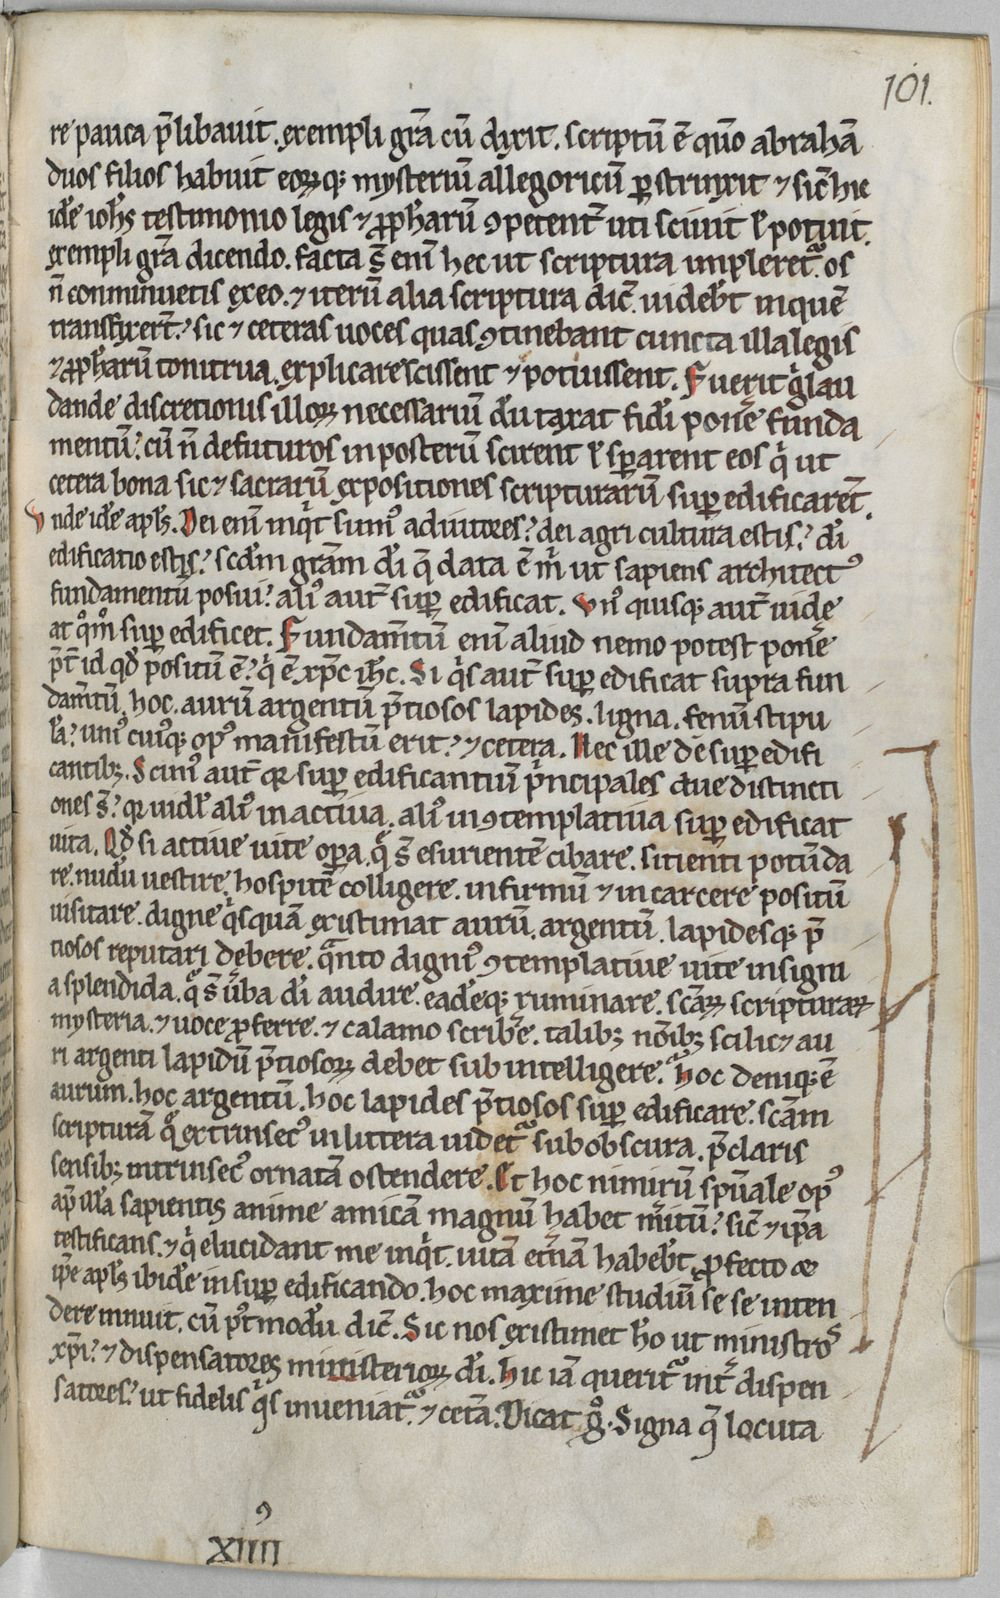 101.
re pauca p̄libauit. exempli gr̄a cū dixit. scriptū ē quō abrahā
duos filios habuit eoꝝq; mysteriū allegoricū ꝑstrinxit ⁊ sic̄ hic
idē ioh̄s testimonio legis ⁊ ꝓph̄arū ꝯpetent̄ uti sciuit ł potuit.
exempli gr̄a dicendo. facta s̄ enī hec ut scriptura impleret᷑. os
n̄ conminuetis ex eo. ⁊ iterū alia scriptura dic̄. uideb̄t in quē
transfixer̄t. sic ⁊ ceteras uoces quas ꝯtinebant cuncta illa legis
⁊ ꝓph̄arū tonitrua. explicare scissent ⁊ potuissent. Fuerit g̊ lau
dande discretionis illoꝝ necessariū dū taxat fidei̅ pon̄e funda
mentū. cū n̄ defuturos in posterū scirent ł sꝑarent eos qͥ ut
cetera bona sic ⁊ sacrarū expositiones scripturarū suꝑ edificarēt.
Vnde idē apl̄s. Dei enī inqͥt sumꝰ adiutores. dei agri cultura estis. dī
edificatio estis. scdm̄ gr̄am dī q̄ data ē m̄ ut sapiens architectꝰ
fundamentū posui. aliꝰ aut̄ suꝑ edificat. Vnꝰ quisq; aut̄ uide
at qͦm̊ suꝑ edificet. Fundam̄tū enī aliud nemo potest pon̄e
p̄t̄ id qd̄ positū ē. qͥ ē xp̄c ih̄c. Si qͥs aut̄ suꝑ edificat supra fun
dam̄tū hoc. aurū argentū p̄tiosos lapides. ligna. fenū stipu
lā. uniꝰ cuiꝰq; opꝰ manifestū erit. ⁊ cetera. Nec ille de suꝑ edifi
cantibꝫ. Scimꝰ aut̄ qꝛ suꝑ edificantiū pͥncipales due distincti
ones s̄. qꝛ uidł aliꝰ in actiua. aliꝰ in ꝯtemplatiua suꝑ edificat
uita. Qd̄ si actiue uite oꝑa. qͣ s̄ esurientē cibare. sitienti potū da
re. nudū uestire. hospitē colligere. infirmū ⁊ in carcere positū
uisitare. digne qͥsquā existimat aurū. argentū. lapidesq; p̄
tiosos reputari debere. qͣnto digniꝰ ꝯtemplatiue uite insigni
a splendida. qͣ s̄ ūba dī audire. eadēq; ruminare. scāꝝ scripturaꝝ
mysteria. ⁊ uoce ꝓferre. ⁊ calamo scrib̄e. talibꝫ noībꝫ scilic⁊ au
ri argenti lapidū p̄tiosoꝝ debet sub intelligere. Hoc deniq; ē
aurum. hoc argentū. hoc lapides p̄tiosos suꝑ edificare. scām
scripturā qͣ extrinsecꝰ in littera uidet᷑ subobscura. p̄claris
sensibꝫ intrinsecꝰ ornatā ostendere. Et hoc nimirū spūale opꝰ
ap̄ illā sapientis anime amicā magnū habet m̄itū. sic̄ ⁊ ip̄a
testificans. ⁊ qͥ elucidant me inqͥt. uitā et̄nā habeb̄t.
ip̄e apl̄s ibidē in suꝑ edificando. hoc maxime studiū se se inten
dere innuit. cū p̄t modū dic̄. Sic nos existimet hō ut ministros
xp̄i. ⁊ dispensatores ministerioꝝ dī. Hic iā querit᷑ int̄ dispen
satores. ut fidelis qͥs inueniat᷑. ⁊ cet̄a. Dicat g̊. Signa q̄ locuta
XIIIIꝰ